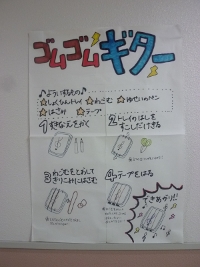 ゴムゴムギター
♪ようい するもの♪
☆しょくひんトレイ ☆わごむ ☆ゆせいのペン
☆はさみ ☆テープ
1 すきなえをかく
2 トレイのはしを
すこしだけきる
3 わごむをとおして
きりこみにはさむ
4 テープをはる
できあがり!